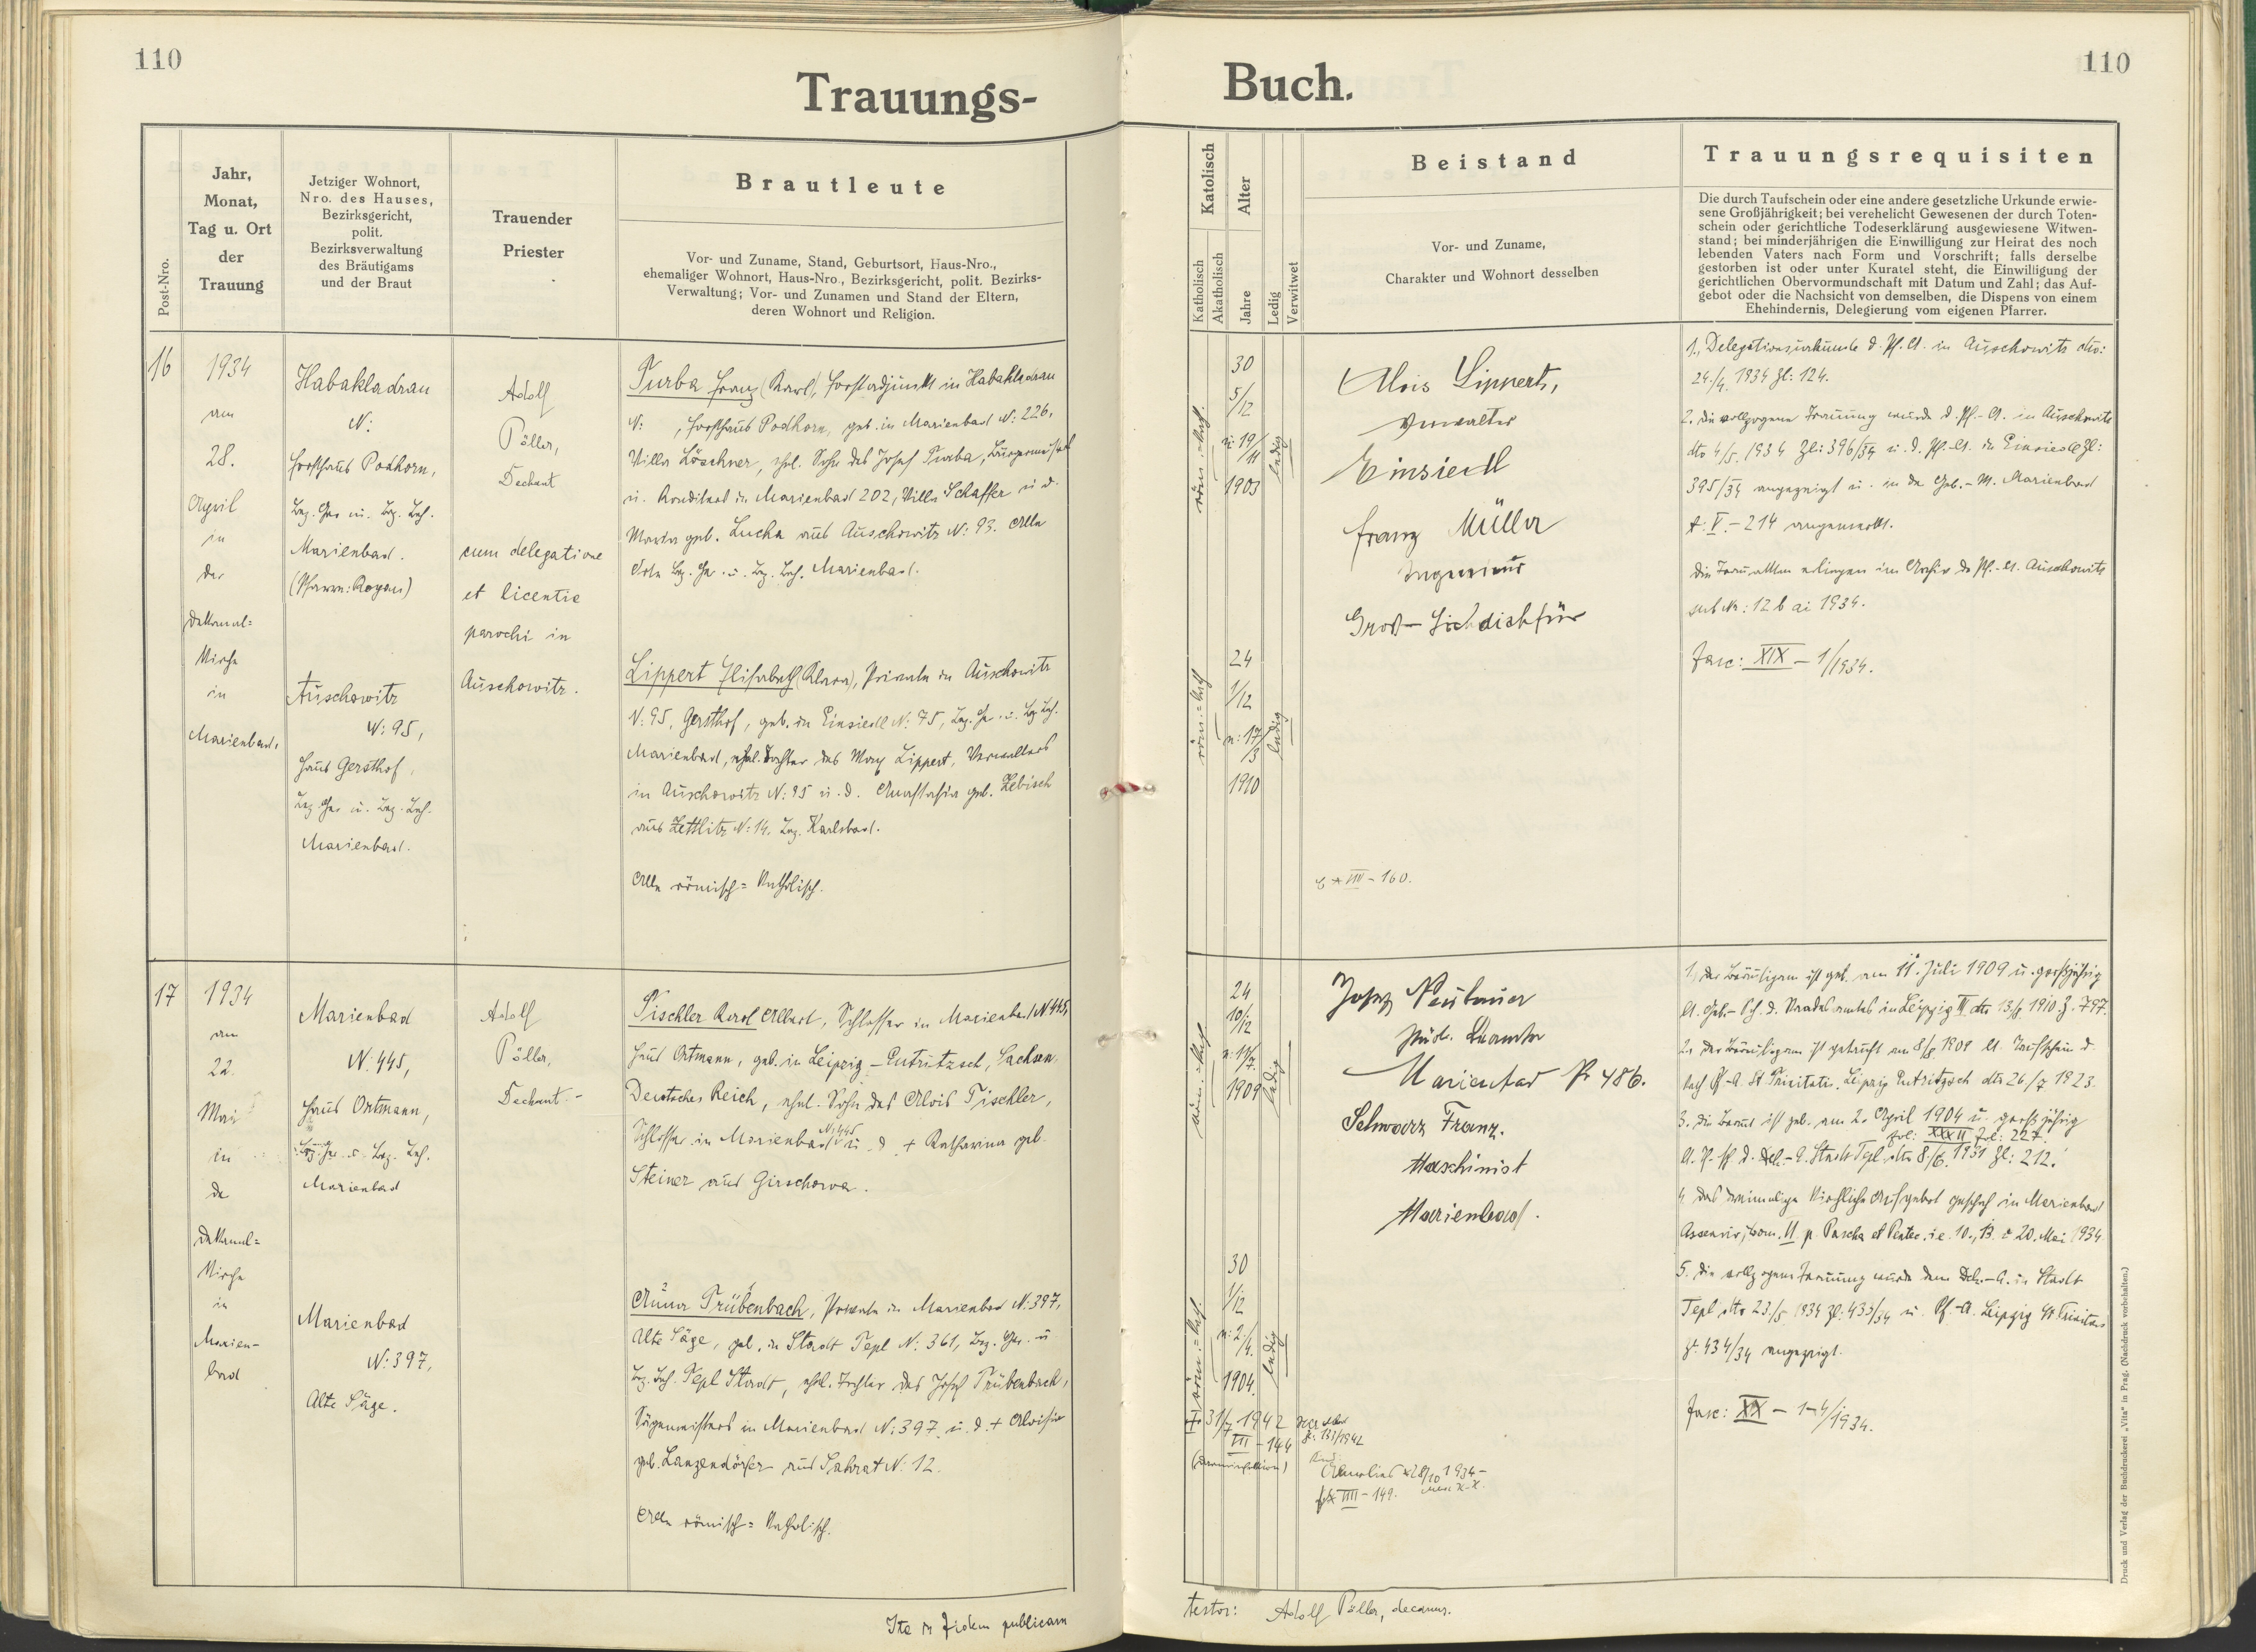 110
Trauungs-
Post-Nro.
Jahr,
Monat,
Tag u. Ort
der
Trauung
Jetziger Wohnort,
Nro. des Hauses,
Bezirksgericht,
polit.
Bezirksverwaltung
des Bräutigams
und der Braut
Trauender
Priester
Brautleute
Vor- und Zuname, Stand, Geburtsort, Haus-Nro.,
ehemaliger Wohnort, Haus-Nro., Bezirksgericht, polit. Bezirks-
Verwaltung; Vor- und Zunamen und Stand der Eltern,
deren Wohnort und Religion.
16
1934
am
28.
April
in
der
Dekanal=
Kirche
in
Marienbad.
Habakladrau
N:
Forsthaus Podhorn,
Bez. Ger. u. Bez. Beh.
Marienbad.
(Pfarre: Rojau)
Auschowitz
N: 95,
Haus Gersthof,
Bez. Ger. u. Bez. Beh.
Marienbad.
Adolf
Pöller,
Dechant
cum delegatione
et licentia
parochi in
Auschowitz.
Turba Franz (Karl), Forstadjunkt in Habakladrau
N: , Forsthaus Podhorn, geb. in Marienbad N: 226,
Villa Löschner, ehel. Sohn des Josef Turba, Bürgermeist
u. Konditors in Marienbad 202, Villa Schaffer u. d.
Maria geb. Lucha aus Auschowitz N: 93. Alle
Orte Bez. Ger. u. Bez. Beh. Marienbad.
Lippert Elisabeth (Klara), Private in Auschowitz
N: 95, Gersthof, geb. in Einsiedl N: 75, Bez. Ger. u. Bez. Beh.
Marienbad, ehel. Tochter des Marx Lippert, Verwalters
in Auschowitz N: 95 u. d. Anastasia geb. Zebisch
aus Zettlitz N: 14. Bez. Karlsbad.
Alle römisch=katholisch.
17
1934
am
22.
Mai
in
der
Dekanal=
Kirche
in
Marien-
bad
Marienbad
N: 445,
Haus Ortmann,
Bez. Ger. u. Bez. Beh.
Marienbad
Marienbad
N: 397,
Alte Säge.
Adolf
Pöller,
Dechant.-
Tischler Karl Albert, Schlosser in Marienbad N 445,
Haus Ortmann, geb. in Leipzig-Eutritzsch, Sachsen
Deutsches Reich, ehel. Sohn des Alois Tischler,
Schlosser in Marienbad N: 445 u. d. + Katharina geb.
Steiner aus Girschowa.
Anna Trübenbach, Private in Marienbad N: 397,
Alte Säge, geb. in Stadt Tepl N: 361, Bez. Ger. u
Bez. Beh. Tepl Stadt, ehel. Tochter des Josef Trübenbach,
Sägemeisters in Marienbad N: 397 u. d. + Aloisia
geb. Lanzendörfer aus Sahrat N: 12.
Alle römisch=katholisch.
Ita in fidem publicam
110
Buch.
Katolisch
Katholisch
Akatholisch
Alter
Jahre
Ledig
Verwitwet
Beistand
Vor- und Zuname,
Charakter und Wohnort desselben
Trauungsrequisiten
Die durch Taufschein oder eine andere gesetzliche Urkunde erwie-
sene Großjährigkeit; bei verehelicht Gewesenen der durch Toten-
schein oder gerichtliche Todeserklärung ausgewiesene Witwen-
stand; bei minderjährigen die Einwilligung zur Heirat des noch
lebenden Vaters nach Form und Vorschrift; falls derselbe
gestorben ist oder unter Kuratel steht, die Einwilligung der
gerichtlichen Obervormundschaft mit Datum und Zahl; das Auf-
gebot oder die Nachsicht von demselben, die Dispens von einem
Ehehindernis, Delegierung vom eigenen Pfarrer.
röm.=kath.
30
5/12
n: 19/11
1903
ledig
röm.=kath
24
1/12
n: 17/3
1910
ledig
Alois Lippert,
Verwalter
Einsiedl
Franz Müller
Ingenieur
Groß-Sichdichfür
* VIII-160.
1., Delegationsurkunde d. Pf. A. in Auschowitz dto:
24./4. 1934 Zl: 124.
2. Die vollzogene Trauung wurde d. Pf.-A. in Auschowitz
dto 4/5. 1934 Zl: 396/34 u. d. Pf. A. in Einsiedl Zl:
395/34 angezeigt u. in der Geb.-M. Marienbad
t: V.-214 angemerkt.
Die Trau.akten erliegen im Archiv des Pf.-A. Auschowitz
sub Nr: 12 b ai 1934.
Fasc: XIX-1/1934.
röm.=kath
24
10/12
n: 11/7.
1909
ledig
röm.=kath.
30
1/12
n: 2./4.
1904.
ledig
Josef Neubauer
städt. Beamter
Marienbad Nr 486.
Schwarz Franz.
Maschinist
Marienbad.
31/7 1942
III-144
Zl: 133/1942
* 28/10 1934-
VIII-149.
1, Der Bräutigam ist geb. am 11. Juli 1909 u. großjährig
lt. Geb.-Sch. d. Standesamtes in Leipzig dto 13/8 1910 Z. 797.
2. Der Bräutigam ist getauft am 8/8 1909 lt. Taufschein d.
kath Pf-A. St. Trinitatis, Leipzig Eutritzsch dto 26/7 1923.
3. Die Braut ist geb. am 2. April 1904 u. großjährig
fol: XXXII fol: 227.
Stadt Tepl dto 8./6. 1931 Zl: 212.
4. Das dreimalige kirchliche Aufgebot geschah in Marienbad
p. Pascha et Pentec. i.e. 10., 13. u 20. Mai 1934
5. Die vollzogene Trauung wurde dem Dch.-A. in Stadt
Tepl dto 23/5 1934 Zl: 433/34 u. Pf.-A. Leipzig St Trinitatis
Zl. 434/34 angezeigt.
Fasc: XX-1-4/1934.
testor: Adolf Pöller, decanus.
Druck und Verlag der Buchdruckerei „Vita“ in Prag. (Nachdruck vorbehalten.)